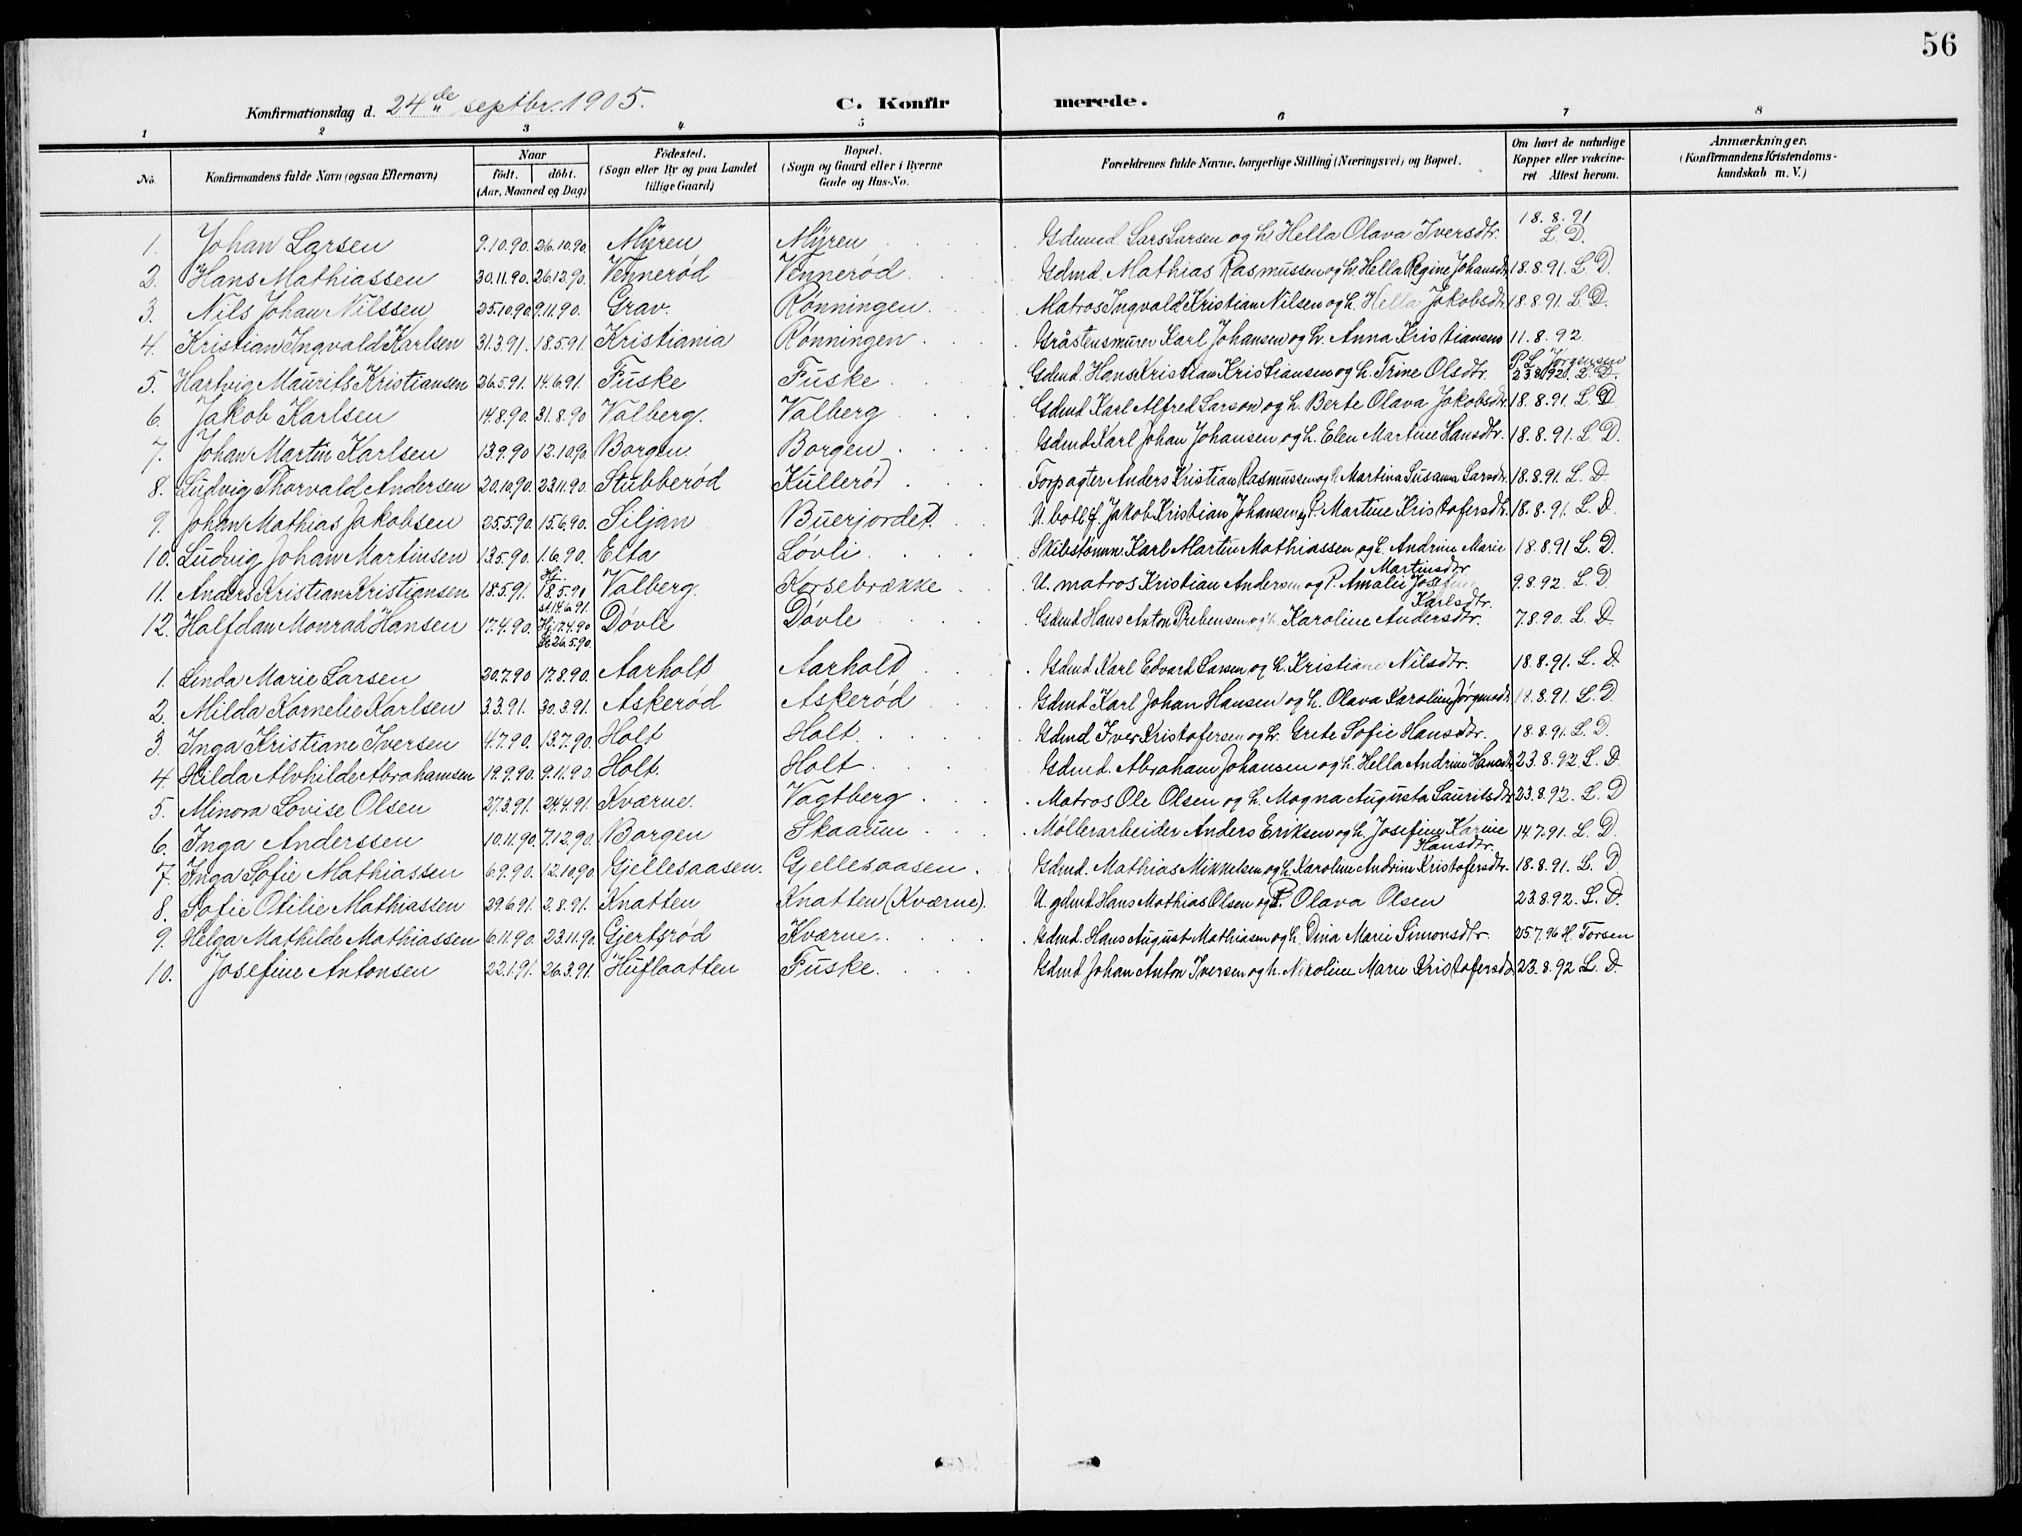 56
Konfirmationsdag d. 24de septbr. 1905. C. Konfirmerede.
1 2 3 4 5 6 7 8
No. Konfirmandens fulde Navn (ogsaa Efternavn) Naar født. døbt. (Aar, Maaned og Dag) Fødested. (Sogn eller By og paa Landet tillige Gaard) Bopæl. (Sogn og Gaard eller i Byerne Gade og Hus-No. Forældrenes fulde Navne, borgerlige Stilling (Næringsvei) og Bopæl. Om havt de naturlige Kopper eller vakcineret. Attest herom. Anmærkninger. (Konfirmandens Kristendomskundskab m. V.)
1. Johan Larsen 9.10.90. 26.10.90. Myren Myren Gdmd. Lars Larsen og h. Hella Olava Iversdtr. 18.8.91 L. D.
2. Hans Mathiassen 30.11.90. 26.12.90. Vennerød Vennerød Gdmd. Mathias Rasmussen og h. Hella Regine Johansdtr. 18.8.91. L. D.
3. Nils Johan Nilssen 25.10.90 9.11.90. Grav. Rønningen. Matros Ingvald Kristian Nilsen og h. Hella Jakobsdtr. 18.8.91. L. D.
4. Kristian Ingvald Karlsen 31.3.91. 18.5.91. Kristiania Rønningen Gråstensmurer Karl Johansen og h. Anna Kristiansen 11.8.92. P. L. Jørgensen
5. Hartvig Maurits Kristiansen 26.5.91. 14.6.91 Fuske Fuske Gdmd. Hans Kristian Kristiansen og h. Trine Olsdtr. 23.8.92. L. D.
6. Jakob Karlsen 14.8.90. 31.8.90 Valberg. Valberg Gdmd Karl Alfred Larsen og h. Berte Olava Jakobsdtr. 18.8.91. L. D
7. Johan Martin Karlsen 13.9.90 12.10.90. Borgen Borgen Gdmd Karl Johan Johansen og h. Elen Martine Hansdtr. 18.8.91. L. D.
8. Ludvig Thorvald Andersen 20.10.90. 23.11.90. Stubberød Kullerød Forpagter Anders Kristian Rasmussen og h. Martina Susanna Larsdtr. 18.8.91. L. D.
9. Johan Mathias Jakobsen 25.5.90. 15.6.90. Siljan Buerjordet. U. Jakob Kristian Johansen og P. Martine Kristofersdtr. 18.8.91. L. D.
10. Ludvig Johan Martinsen 13.5.90. 1.6.90. Elta Løvli Skibstømm. Karl Martin Mathiassen og h. Andrine Marie Martinsdtr 18.8.91 L. D.
11. Anders Kristian Kristiansen 18.5.91. Hj. 18.5.90 st. 14.6.91. Valberg. Korsebrække U. matros Kristian Andersen og P. Amalie Josefine Karlsdtr. 9.8.92. L. D
12. Halfdan Monrad Hansen 17.4.90. Hj. 17.4.90 St 26.5.90. Døvle Døvle Gdmd Hans Anton Prebensen og h. Karoline Andersdtr. 7.8.90. L. D.
1. Linda Marie Larsen 20.7.90 17.8.90. Aarholt Aarholt Gdmd Karl Edvard Larsen og h. Kristiane Nilsdtr. 18.8.91. L. D.
2. Milda Kornelie Karlsen 3.3.91. 30.3.91. Askerød Askerød Gdmd Karl Johan Hansen og h. Olava Karoline Jørgensdtr. 18.8.91. L. D.
3. Inga Kristiane Iversen 4.7.90. 13.7.90. Holt Holt. Gdmd Iver Kristofersen og h. Grete Sofie Hansdtr. 18.8.91. L. D.
4. Hilda Alvhilde Abrahamsen 19.9.90. 9.11.90. Holt. Holt. Gdmd. Abraham Johansen og h. Hella Andrine Hansdtr. 23.8.92. L. D.
5. Minora Lovise Olsen 27.3.91. 24.4.91. Kværne. Vagtberg Matros Ole Olsen og h. Magna Augusta Lauritsdtr 23.8.92. L. D
6. Inga Anderssen 10.11.90. 7.12.90. Borgen Skaarun Møllerarbeider Anders Eriksen og h. Josefine Karine Hansdtr. 14.7.91. L. D.
7. Inga Sofie Mathiassen 6.9.90. 12.10.90. Gjellesaasen. Gjellesaasen. Gdmd. Mathias Mikkelsen og h. Karoline Andrine Kristofersdtr. 18.8.91. L. D.
8. Sofie Otilie Mathiassen 29.6.91. 2.8.91. Knatten Knatten (Kværne). U. gdmd Hans Mathias Olsen og P. Olava Olsen 23.8.92. L. D.
9. Helga Mathilde Mathiassen 6.11.90. 23.11.90. Gjertsrød Kværne. Gdmd. Hans August Mathiasen og h. Dina Marie Simonsdtr. 25.7.96 H. Torsen
10. Josefine Antonsen 22.1.91. 26.3.91. Huflaatten Fuske. Gdmd Johan Anton Iversen og h. Nikoline Marie Kristofersdtr 23.8.92 L. D.